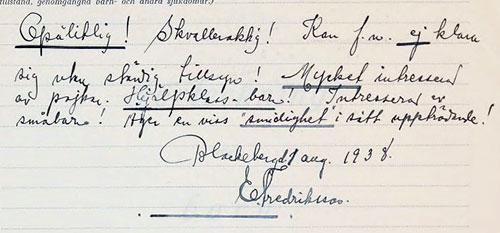 tillstånd, genomgångna barn- och andra sjukdomar.)
Opålitlig! Skvalleraktig! Kan f.n. ej klara
sig utan ständig tillsyn! Mycket intresserad
av pojkar. Hjälpklass-barn! Intresserad av
småbarn! Äger en viss "smidighet" i sätt uppträdande!
Blackeberg d. 1 aug. 1938.
E. Fredriksson.